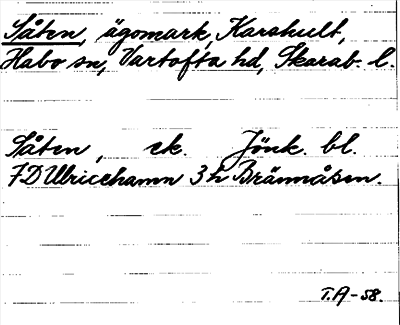 Såten, ägomark, Karahult,
Habo sn, Vartofta hd, Skarab. l.
Såten, ek. Jönk. bl.
7D Ulricehamn 3h Brännåsen.
T.A-58.